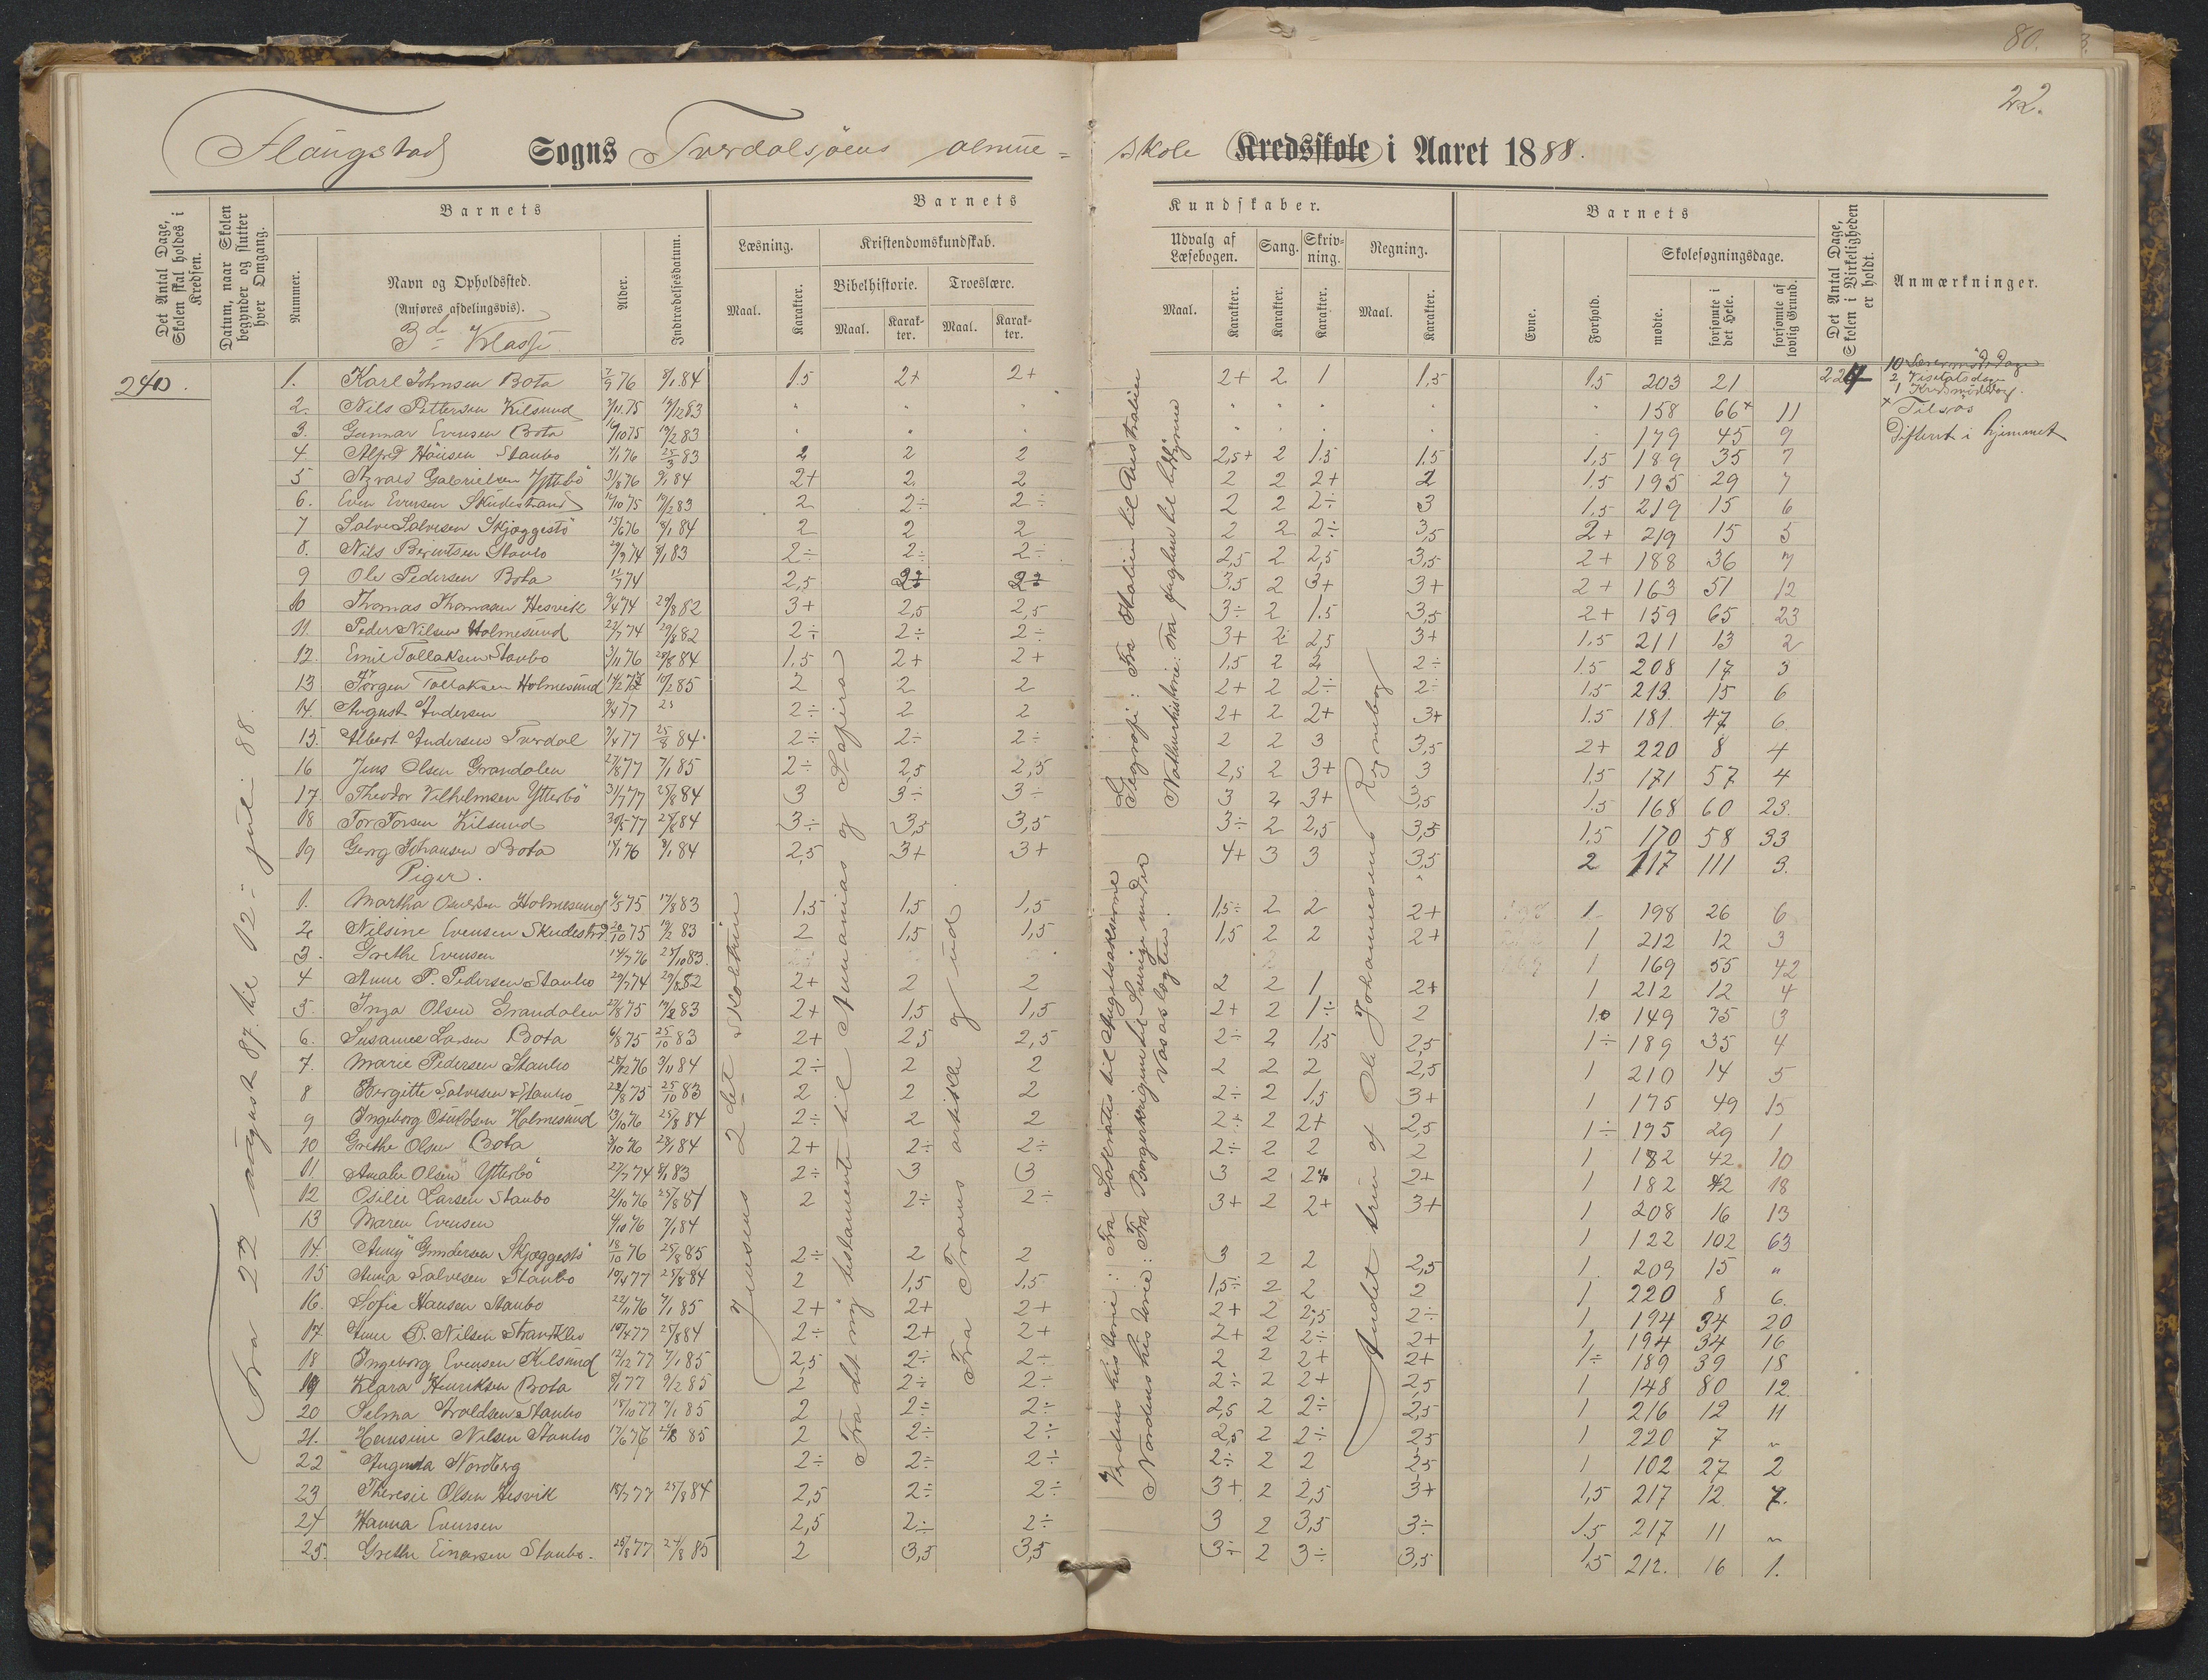 80.
22.
Flaugstad Sogns Tverdalsøens almue= skole Kredsskole i Aaret 1888.
Det Antal Dage, Skolen skal holdes i Kredsen.
Datum, naar Skolen begynder og slutter hver Omgang.
Barnets
Nummer.
Navn og Opholdssted.
(Anføres afdelingsvis).
3de Klasse
Alder.
Indtrædelsesdatum.
Barnets Kundskaber.
Læsning.
Maal.
Karakter.
Kristendomskundskab.
Bibelhistorie.
Maal.
Karakter.
Troeslære.
Maal.
Karakter.
Udvalg af Læsebogen.
Maal.
Karakter.
Sang.
Karakter.
Skrivning.
Karakter.
Regning.
Maal.
Karakter.
Barnets
Evne.
Forhold.
Skolesøgningsdage.
mødte.
forsømte i det Hele.
forsømte af lovlig Grund.
Det Antal Dage, Skolen i Virkeligheden er holdt.
Anmærkninger.
240.
Fra 22 august 87. til 12 juli 88.
224
2 Visitatsdag
Tilsas
Difterit i hjemmet
1. Karl Johnsen Bota 7/9 76 8/1 84 1.5 2+ 2+ 2+ 2 1 1,5 1.5 203 21
2. Nils Pettersen Kilsund 7/11 75 19/12 83 " " " " " " " " 158 66+ 11
3. Gunnar Evensen Bota 16/10 75 19/2 83 " " " " " " " " 179 45 9
4 Alfred Hansen Staubo 7/1 76 25/3 83 2 2 2 2,5+ 2 1.5 1.5 1,5 189 35 7
5 Atzvald Gabrielsen Ytterbö 31/8 76 9/1 84 2+ 2 2 2 2 2+ 2 1.5 195 29 7
6. Even Evensen Skudestrand 14/10 75 19/2 83 2 2÷ 2÷ 2 2 2÷ 3 1,5 219 15 6
7 Salve Salvesen Skjæggestö 15/6 76 18/1 84 2 2 2 2 2 2÷ 3,5 2+ 219 15 5
8. Nils Berintsen Staubo 29/9 74 8/1 83 2÷ 2÷ 2÷ 2,5 2 2,5 3,5 2+ 188 36 7
9 Ole Pedersen Bota 11/7 74 2,5 3.5 2 3+ 3+ 2+ 163 51 12
10 Thomas Thomasen Hesvik 9/4 74 29/8 82 3+ 2,5 2,5 3÷ 2 1.5 3,5 2+ 159 65 23
11. Peder Nilsen Holmesund 22/7 74 29/8 82 2÷ 2÷ 2÷ 3+ 2 2,5 3+ 1.5 211 13 2
12. Emil Tallaksen Staubo 3/11 76 28/8 84 1,5 2+ 2+ 1,5 2 2 2÷ 1.5 208 17 3
13 Jörgen Tallaksen Holmesund 14/2 10/2 85 2 2 2 2+ 2 2÷ 2÷ 1,5 213. 15 6
14. August Andersen 9/4 77 2÷ 2 2 2+ 2 2+ 3+ 1.5 181 47 6
15. Albert Andersen Tverdal 9/4 77 25/8 84 2÷ 2÷ 2÷ 2 2 3 3,5 2+ 220 8 4
16 Jens Olsen Grandalen 27/8 77 7/1 85 2÷ 2,5 2,5 2,5 2 3+ 3 1.5 171 57 4
17 Theodor Vilhelmsen Ytterbö 31/7 77 25/8 84 3 3÷ 3÷ 3 2 3+ 3,5 1.5 168 60 23.
18 Tor Torsen Kilsund 30/5 77 25/8 84 3÷ 3,5 3,5 3÷ 2 2,5 3,5 1,5 170 58 33
19 Georg Johansen Bota 14/1 76 8/1 84 2,5 3+ 3+ 4+ 3 3 3,5 2 117 111 3.
Piger.
1. Martha Osuldsen Holmesund 6/5 75 17/8 83 1,5 1,5 1,5 1,5÷ 2 2 2+ 1 198 26 6
2 Nilsine Evensen Skudestrd 20/10 75 19/2 83 2 1,5 1,5 1,5 2 2 2+ 1 212 12 3
3. Grethe Evensen 14/7 76 25/10 83. 1 169 55 42
4 Anne P. Pedersen Staubo 29/7 74 29/8 82 2+ 2 2 2 2 1 2+ 1 212 12 4
5. Inga Olsen Grandalen 27/8 75 19/2 83 2+ 1,5 1,5 2+ 2 1÷ 2 149 75 3
6. Susanne Larsen Bota 6/8 75 25/10 83 2+ 2,5 2,5 2÷ 2 1,5 2,5 1÷ 189 35 4
7. Marie Pedersen Staubo 28/12 76 3/11 84 2÷ 2 2 2 2 2 2,5 1 210 14 5
8 Bergitte Salvesen Staubo 28/8 75 25/10 83 2 2 2 2÷ 2 1,5 3+ 1 175 49 15
9 Ingeborg Osuldsen Holmesund 13/10 76 25/8 84 2÷ 2 2 2÷ 2 2+ 2,5 1÷ 195 29 1
10 Grethe Olsen Bota 3/10 76 28/1 84 2+ 2÷ 2÷ 2÷ 2 2 2 1 182 42 10
11. Amalie Olsen Ytterbö 27/7 74 8/1 83 2÷ 3 3 3 2 2+ 2+ 1 182 42 18
12 Osilie Larsen Staubo 2/10 76 25/8 84 2 2÷ 2÷ 3+ 2 2+ 3+ 1 208 16 13
13 Maren Evensen 4/10 76 7/1 84 1 122 102 63
14. Anny Gundersen Skjæggestö 18/10 76 25/8 85 2÷ 2 2 3 2 2 2,5 1 209 15 "
15 Anna Salvesen Staubo 10/4 77 25/8 84 2 1,5 1,5 1,5÷ 2 2 2 1 220 8 6.
16. Sofie Hansen Staubo 22/11 76 7/1 85 2+ 2+ 2+ 2+ 2 2,5 2÷ 1 194 34 20
17. Anne B. Nilsen 10/4 77 25/8 84 2÷ 2+ 2+ 2+ 2 2÷ 2+ 1 194 34 16
18 Ingeborg Evensen Kilsund 12/12 77 7/1 85 2,5 2÷ 2÷ 2 2 2+ 2+ 1÷ 189 39 18
19 Klara Henriksen Bota 8/1 77 9/2 85 2 2÷ 2÷ 2÷ 2 2+ 2,5 1 148 80 12.
20 Selma Avoldsen Staubo 18/10 77 7/1 85 2 2÷ 2÷ 2,5 2 2÷ 2,5 1 216 12 11
21. Hansine Nilsen Staubo 17/6 76 85 2 2÷ 2÷ 2,5 2 2÷ 2,5 1 220 7 "
22 Augusta Nordberg 2÷ 2÷ 2÷ 2÷ 2 2 2,5 1 102 27 2
23 Theresie Olsen Hesvik 18/7 77 25/8 84 2,5 2÷ 2÷ 3+ 2 2,5 3+ 1,5 217 12 7.
24 Hanna Evensen 2,5 2÷ 2÷ 3 2 3,5 3÷ 1.5 217 11 "
25. Grethe Einarsen Staubo. 25/8 77 24/8 85 2 3,5 3,5 3÷ 2 3÷ 3,5 1,5 212. 16 1.
Jensens 2det Skoletrin
Fra det ny testamente til Annanias og Safira
Fra Troens artikler g ud
Geografi: Fra Italien til Australien
Naturhistorie: Fra fuglene til krybdyrene
Verdens historie: Fra Sokrates til Angelsakserne
Nordens historie: Fra Borgerkrigene til Sverige under Vasaslægten.
Andet trin af Ole Johannesens Regnebog